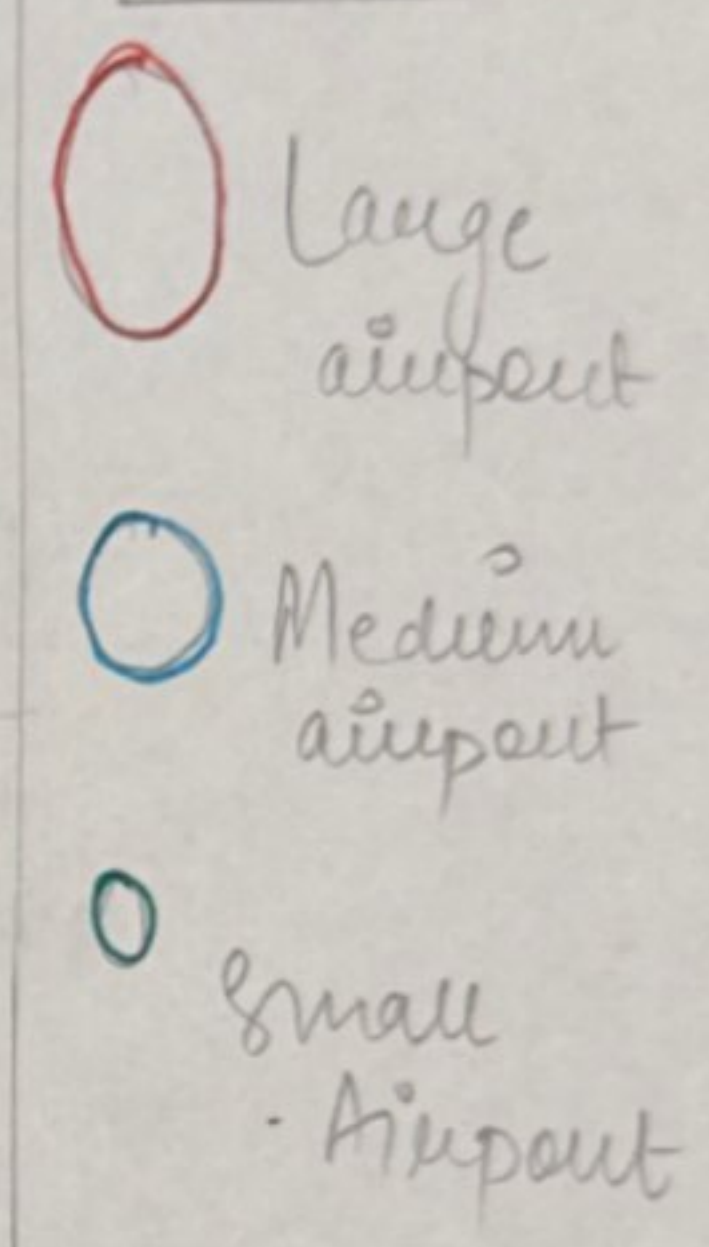 Large
airport
Medium
airport
Small
Airport